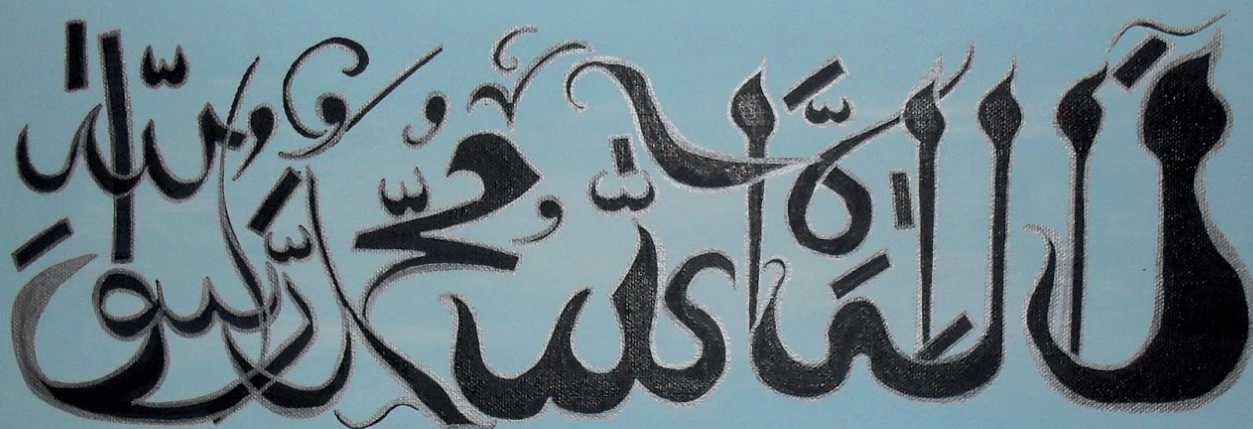 لَآ إِلٰهَ إِلَّا اللّٰهُ مُحَمَّدٌ رَّسُولُ اللّٰهِ